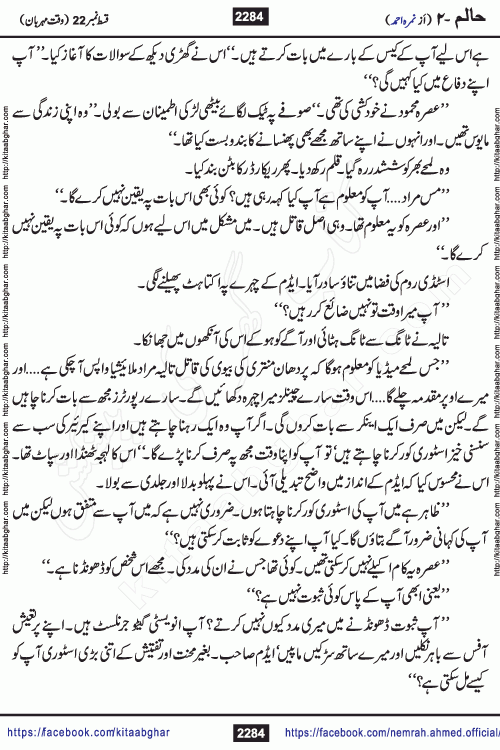 حالم -۲ (از نمرہ احمد) 2284 قسط نمبر 22 (وقت مہربان)
ہے اس لیے آپ کے کیس کے بارے میں بات کرتے ہیں۔‘‘اس نے گھڑی دیکھ کے سوالات کا آغاز کیا۔’’آپ
اپنے دفاع میں کیا کہیں گی؟‘‘
’’عصرہ محمود نے خودکشی کی تھی۔‘‘صوفے پہ ٹیک لگائے بیٹھی لڑکی اطمینان سے بولی۔’’وہ اپنی زندگی سے
مایوس تھیں۔اور انہوں نے اپنے ساتھ مجھے بھی پھنسانے کا بندوبست کیا تھا۔‘‘
وہ لمحے بھر کو ششدر رہ گیا۔قلم رکھ دیا۔ پھر ریکارڈر کا بٹن بند کیا۔
’’مس مراد....آپ کو معلوم ہے آپ کیا کہہ رہی ہیں؟ کوئی بھی اس بات پہ یقین نہیں کرے گا۔‘‘
’’اور عصرہ کو یہ معلوم تھا۔وہی اصل قاتل ہیں۔میں مشکل میں اس لیے ہوں کہ کوئی اس بات پہ یقین نہیں
کرے گا۔‘‘
اسٹڈی روم کی فضا میں تناؤ سا در آیا۔ایڈم کے چہرے پہ اکتاہٹ پھیلنے لگی۔
’’آپ میرا وقت تو نہیں ضائع کر رہیں؟‘‘
تالیہ نے ٹانگ سے ٹانگ ہٹائی اور آگے کو ہو کے اس کی آنکھوں میں جھانکا۔
’’جس لمحے میڈیا کو معلوم ہوگا کہ پردھان منتری کی بیوی کی قاتل تالیہ مراد ملائیشیا واپس آ چکی ہے....اور
میرے اوپر مقدمہ چلے گا....اس وقت سارے چینلز میرا چہرہ دکھائیں گے۔سارے رپورٹرز مجھ سے بات کرنا چاہیں
گے۔لیکن میں صرف ایک اینکر سے بات کروں گی۔اگر آپ وہ ایک رہنا چاہتے ہیں اور اپنے کیریئر کی سب سے
سنسنی خیز اسٹوری کور کرنا چاہتے ہیں تو آپ کو اپنا وقت مجھ پہ صرف کرنا پڑے گا۔‘‘اس کا لہجہ ٹھنڈا اور سپاٹ تھا۔
اس نے محسوس کیا کہ ایڈم کے انداز میں واضح تبدیلی آئی۔اس نے پہلو بدلا اور جلدی سے بولا۔
’’ظاہر ہے میں آپ کی اسٹوری کور کرنا چاہتا ہوں۔ضروری نہیں ہے کہ میں آپ سے متفق ہوں لیکن میں
آپ کی کہانی ضرور آگے بتاؤں گا۔کیا آپ اپنے دعوے کو ثابت کر سکتی ہیں؟‘‘
’’عصرہ یہ کام اکیلے نہیں کر سکتی تھیں۔کوئی تھا جس نے ان کی مدد کی۔مجھے اس شخص کو ڈھونڈنا ہے۔‘‘
’’یعنی ابھی آپ کے پاس کوئی ثبوت نہیں ہے؟‘‘
’’آپ ثبوت ڈھونڈنے میں میری مدد کیوں نہیں کرتے؟ آپ انویسٹی گیٹو جرنلسٹ ہیں۔اپنے پرتعیش
آفس سے باہر نکلیں اور میرے ساتھ سڑکیں ماپیں‘ ایڈم صاحب۔بغیر محنت اور تفتیش کے اتنی بڑی اسٹوری آپ کو
کیسے مل سکتی ہے؟‘‘
https://facebook.com/kitaabghar 2284 https://facebook.com/nemrah.ahmed.official/
http://kitaabghar.com http://kitaabghar.com http://kitaabghar.com http://kitaabghar.com
http://kitaabghar.com http://kitaabghar.com http://kitaabghar.com http://kitaabghar.com